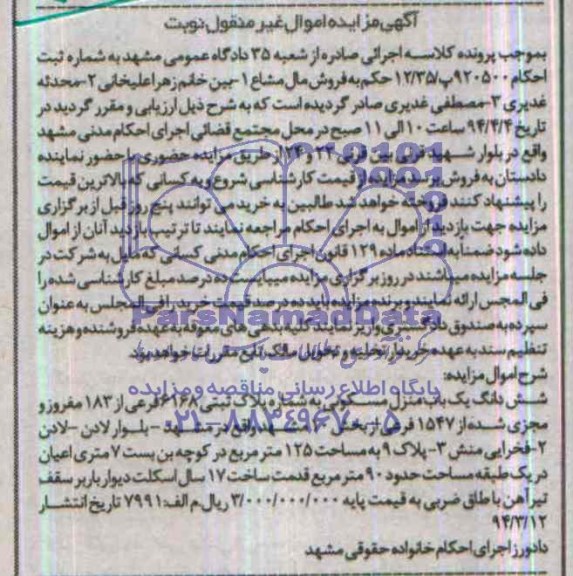 آگهی مزایده اموال غیر منقول نوبت
بموجب پرونده کلاسه اجرائی صادره از شعبه ۳۵ دادگاه عمومی مشهد به شماره ثبت
احکام ۹۲۰۵۰۰پ/۱۲/۳۵ حکم به فروش مال مشاع ۱-بین خانم زهرا علیخانی ۲-محدثه
غدیری ۳-مصطفی غدیری صادر گردیده است که به شرح ذیل ارزیابی و مقرر گردید در
تاریخ ۹۴/۴/۴ ساعت ۱۰ الی ۱۱ صبح در محل مجتمع قضائی اجرای احکام مدنی مشهد
واقع در بلوار شهید قرنی بین قرنی ۲۳ و ۲۴ از طریق مزایده حضوری با حضور نماینده
دادستان به فروش برسد مزایده از قیمت کارشناسی شروع و به کسانی که بالاترین قیمت
را پیشنهاد کنند فروخته خواهد شد طالبین به خرید می توانند پنج روز قبل از برگزاری
مزایده جهت بازدید از اموال به اجرای احکام مراجعه نمایند تا ترتیب بازدید آنان از اموال
داده شود ضمنا به استناد ماده ۱۲۹ قانون اجرای احکام مدنی کسانی که مایل به شرکت در
جلسه مزایده میباشند در روز برگزاری مزایده میبایست ده درصد مبلغ کارشناسی شده را
فی المجلس ارائه نمایند و برنده مزایده باید ده درصد قیمت خرید را فی المجلس به عنوان
سپرده به صندوق دادگستری واریز نماید کلیه بدهی های معوقه به عهده فروشنده و هزینه
تنظیم سند به عهده خریدار تخلیه و تحویل مالک تابع مقررات خواهد بود.
شرح اموال مزایده:
شش دانگ یک باب منزل مسکونی به شماره پلاک ثبتی ۶۱۶۸ فرعی از ۱۸۳ مفروز و
مجزی شده از ۱۵۴۷ فرعی از بخش واقع در مشهد - بلوار لادن -لادن
۲-فخرایی منش ۳-پلاک ۹ به مساحت ۱۲۵ متر مربع در کوچه بن بست ۷ متری اعیان
در یک طبقه مساحت حدود ۹۰ متر مربع قدمت ساخت ۱۷ سال اسکلت دیوار باربر سقف
تیرآهن با طاق ضربی به قیمت پایه ۳/۰۰۰/۰۰۰/۰۰۰ ریال.م الف:۷۹۹۱ تاریخ انتشار
۹۴/۳/۱۲
دادورز اجرای احکام خانواده حقوقی مشهد
ParsNamadData
پایگاه اطلاع رسانی مناقصه و مزایده
۰۲۱-۸۸۳۴۹۶۷۰-۵